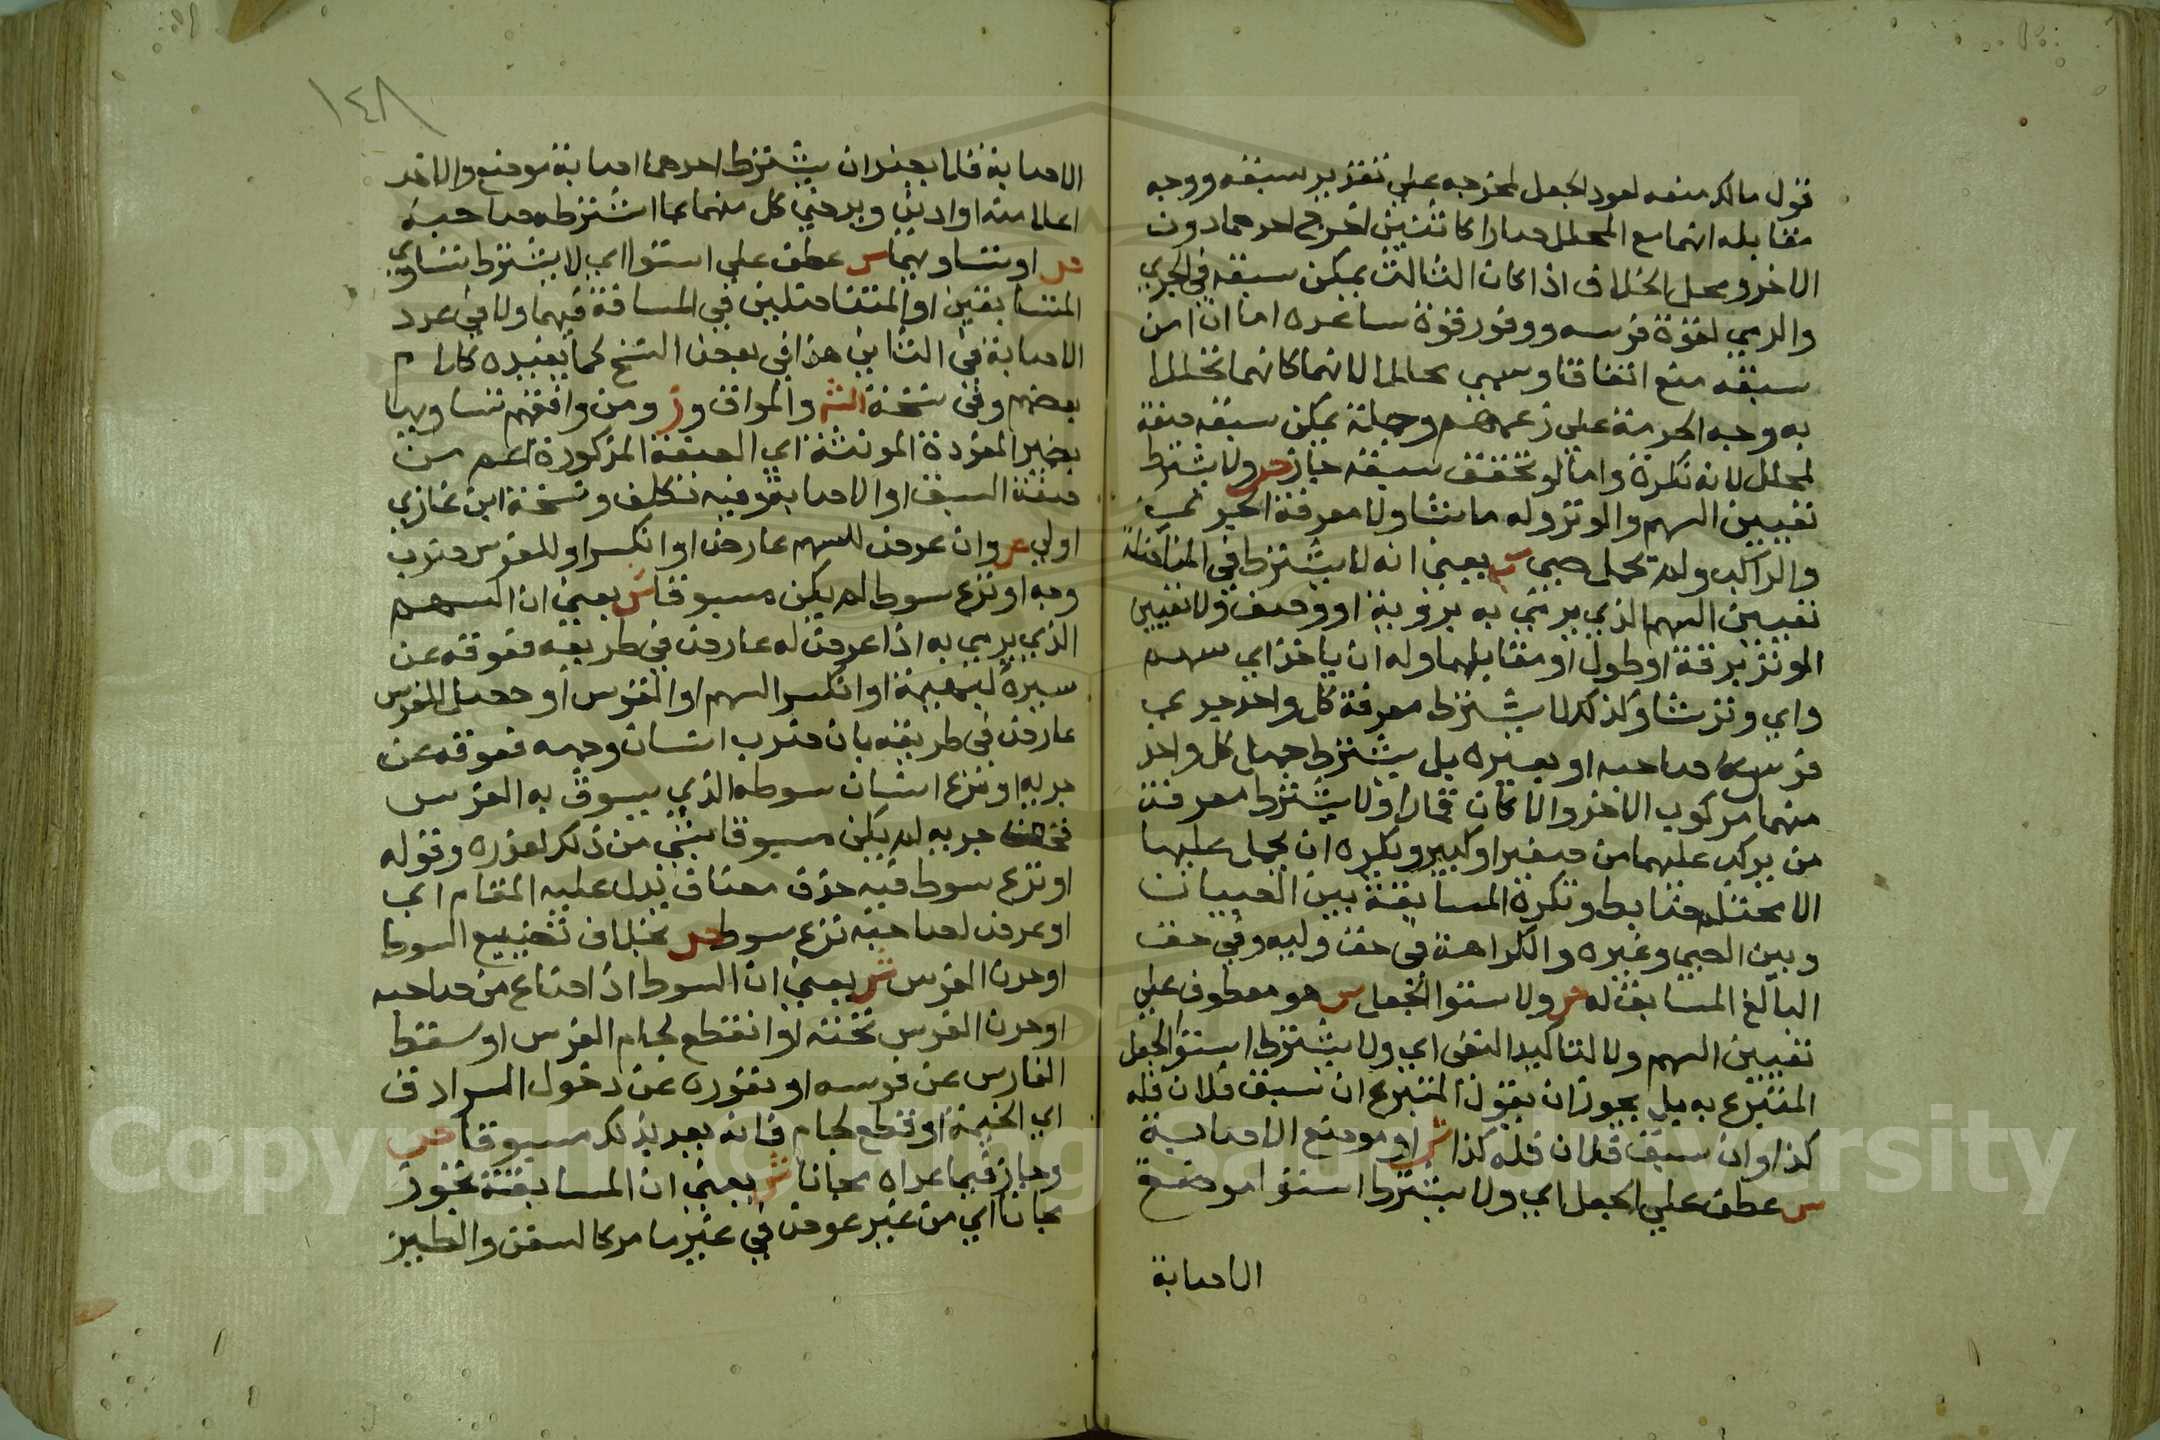 قول مالك منعه لعود الجعل لمخرجه علي تقدير سبقه ووجه
مقابله انهما مع المحلل صارا كاثنين اخرج احدهما دون
الاخر ومحل الخلاف اذا كان الثالث يمكن سبقه في الجري
والرمي لقوة فرسه ووفور قوة ساعده اما ان امن
سبقه منع اتفاقا وسمي محللا لانهما كانهما تحللا
به وجه الحرمة علي زعمهم وجملة يمكن سبقه صفة
لمحلل لانه نكرة واما لو تحقق سبقه جاز ص ولا يشترط
تعيين السهم والوتر وله ما شا ولا معرفة الجري
والراكب ولم يحمل صبي ش يعني انه لا يشترط في المناضلة
تعيين السهم الذي يرمي به برؤية او وصف ولا تعيين
الوتر برقة او طول او مقابلهما وله ان ياخذ اي سهم
واي وتر شا وكذلك لا يشترط معرفة كل واحد جري
فرس صاحبه او بعيره بل يشترط جهل كل واحد
منهما مركوب الاخر والا كان قمارا ولا يشترط معرفة
من يركب عليهما من صغير او كبير ويكره ان يحمل عليها
الا محتلم ضابط وتكره المسابقة بين الصبيان
وبين الصبي وغيره والكراهة في حق وليه وفي حق
البالغ المسابق له ص ولا استوا الجعل ش هو معطوف علي
تعيين السهم ولا لتاكيد النفي اي ولا يشترط استوا الجعل
المتبرع به بل يجوز ان يقول المتبرع ان سبق فلان فله
كذا وان سبق فلان فله كذا ص او موضع الاصابة
ش عطف علي الجعل اي ولا يشترط استوا موضع
الاصابة
١٤٨
الاصابة فلما يعني ان يشترط احدهما اصابة موضع والاخر
اعلا منه او ادني ويرضي كل منهما بما اشترطه صاحبه
ص او تساويهما ش عطف علي استوا اي لا يشترط تساوي
المتسابقين او المتناضلين في المسافة فيهما ولا في عدد
الاصابة في الثاني هذا في بعض النسخ كما يفيده كلام
بعضهم وفي نسخة الش والمواق وز ومن وافقهم تساويها
بضمير المفردة المونثة اي الصفة المذكورة اعم من
صفة السبق او الاصابة وفيه تكلف ونسخة ابن غازي
اولي ص وان عرض للسهم عارض او انكسر او للفرس ضرب
وجه او نزع سوط لم يكن مسبوقا ش يعني ان السهم
الذي يرمي به اذا عرض له عارض في طريقه فعوقه عن
سيره كبهيمة او انكسر السهم او القوس او حصل للفرس
عارض في طريقه بان ضرب انسان وجهه فعوقه عن
جريه او نزع انسان سوطه الذي يسوق به الفرس
فخف جريه لم يكن مسبوقا بشي من ذلك لعذره وقوله
او نزع سوط فيه حذف مضاف يدل عليه المقام اي
او عرض لصاحبه نزع سوط ص بخلاف تضييع السوط
او حرن الفرس ش يعني ان السوط اذا ضاع من صاحبه
او حرن الفرس تحته او انقطع لجام الفرس او سقط
الفارس عن فرسه او نفوره عن دخول السرادق
اي الخيمة او قطع لجام فانه يعد بذلك مسبوقا ص
وجاز فيما عداه مجانا ش يعني ان المسابقة تجوز
مجانا اي من غير عوض في غير ما مر كالسفن والطير
Copyright © King Saud University